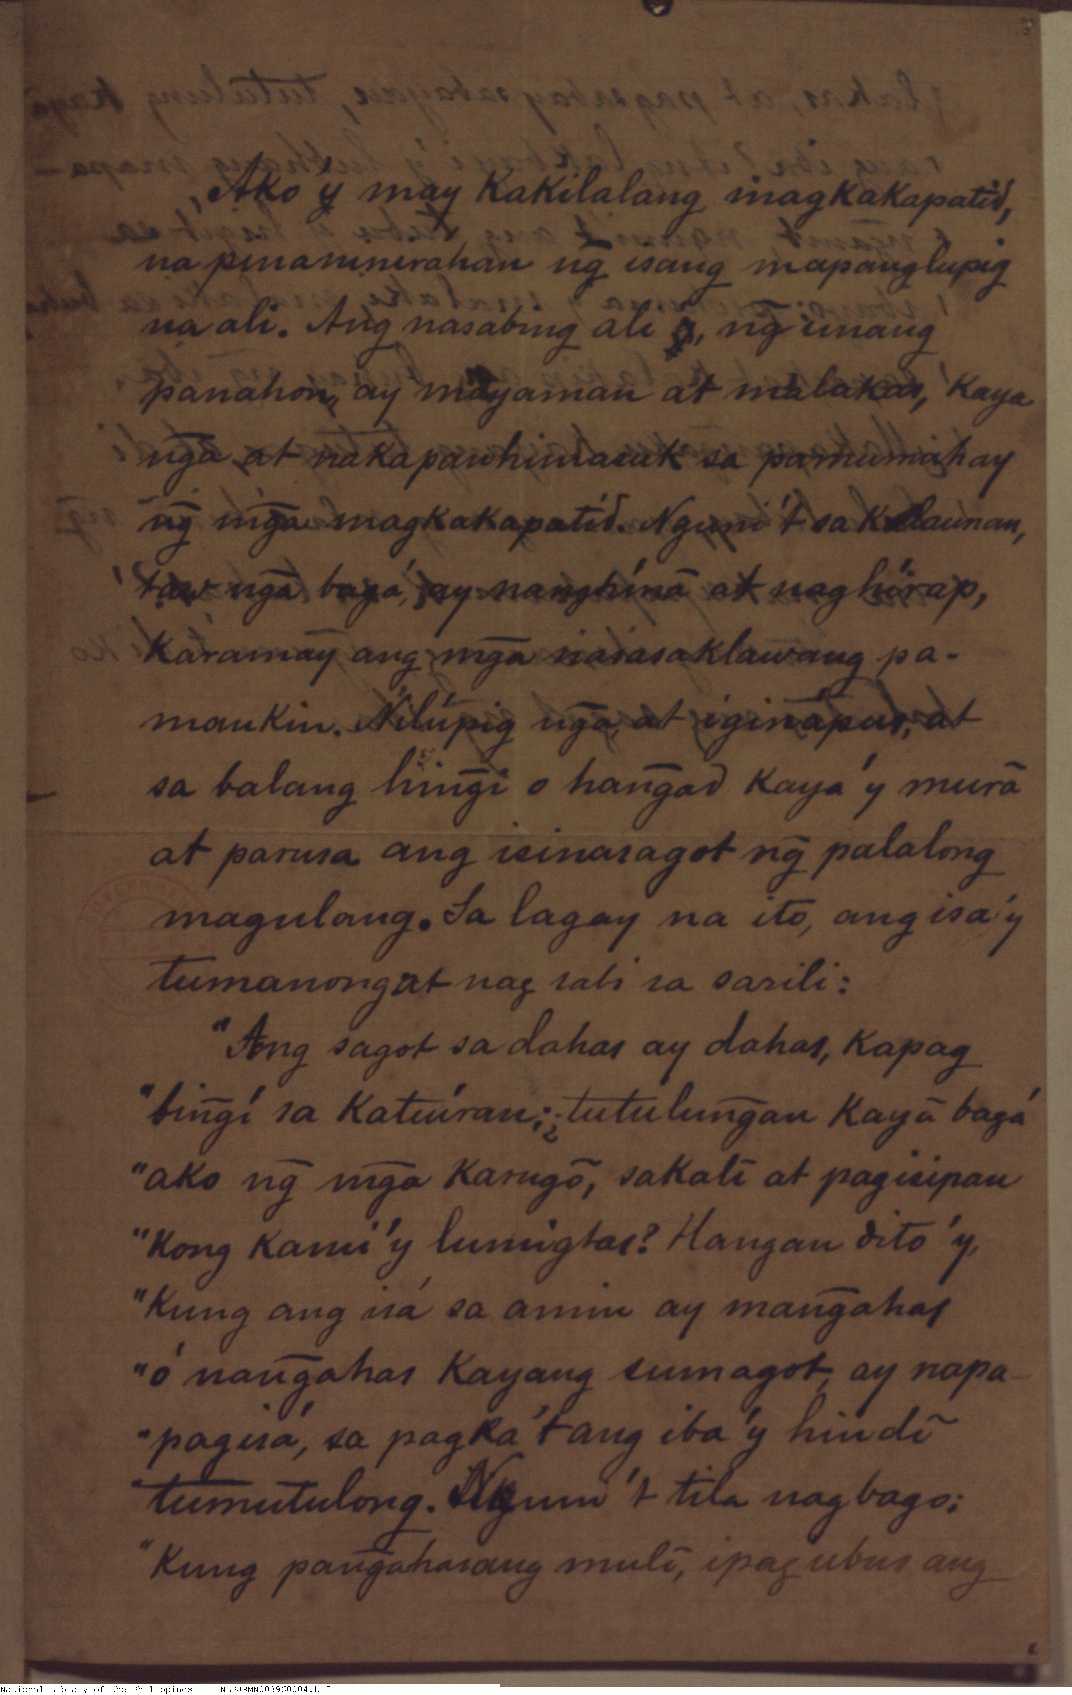 Ako'y may kakilalang magkakapatid,
na pinaninirahan ng̃ isang mapanglupig
na ali. Ang nasabing ali, ng̃ unang
panahon, ay mayaman at malakas, kaya
ng̃a at nakapanhimasuk sa pamumahay
ng̃ mg̃a magkakapatid. Nguni't sa kalaunan,
ng̃a bagá, ay nanghínā at naghírap,
karamáy ang mg̃a nasasaklawang pa-
mankin. Nilúpig ng̃a at iginápus, at
sa balang hing̃i o hang̃ad kaya'y murā
at parusa ang isinasagot ng̃ palalong
magulang. Sa lagay na ito, ang isa'y
tumanong at nag sabi sa sarili:
"Ang sagot sa dahas ay dahas, kapag
"bing̃í sa katuíran; ¿tutulung̃an kayā bagá
"ako ng̃ mg̃a karugō, sakalī at pagisipan
"kong kami'y lumigtas? Hangan dito'y,
"kung ang isá sa amin ay mang̃ahas
"ó nang̃ahas kayang sumagot, ay napa-
"pagisá, sa pagká't ang iba'y hindī
"tumutulong. Nguni't tila nagbago;
"kung pang̃ahasang mulī, ipag ubus ang
National Library of the Philippines